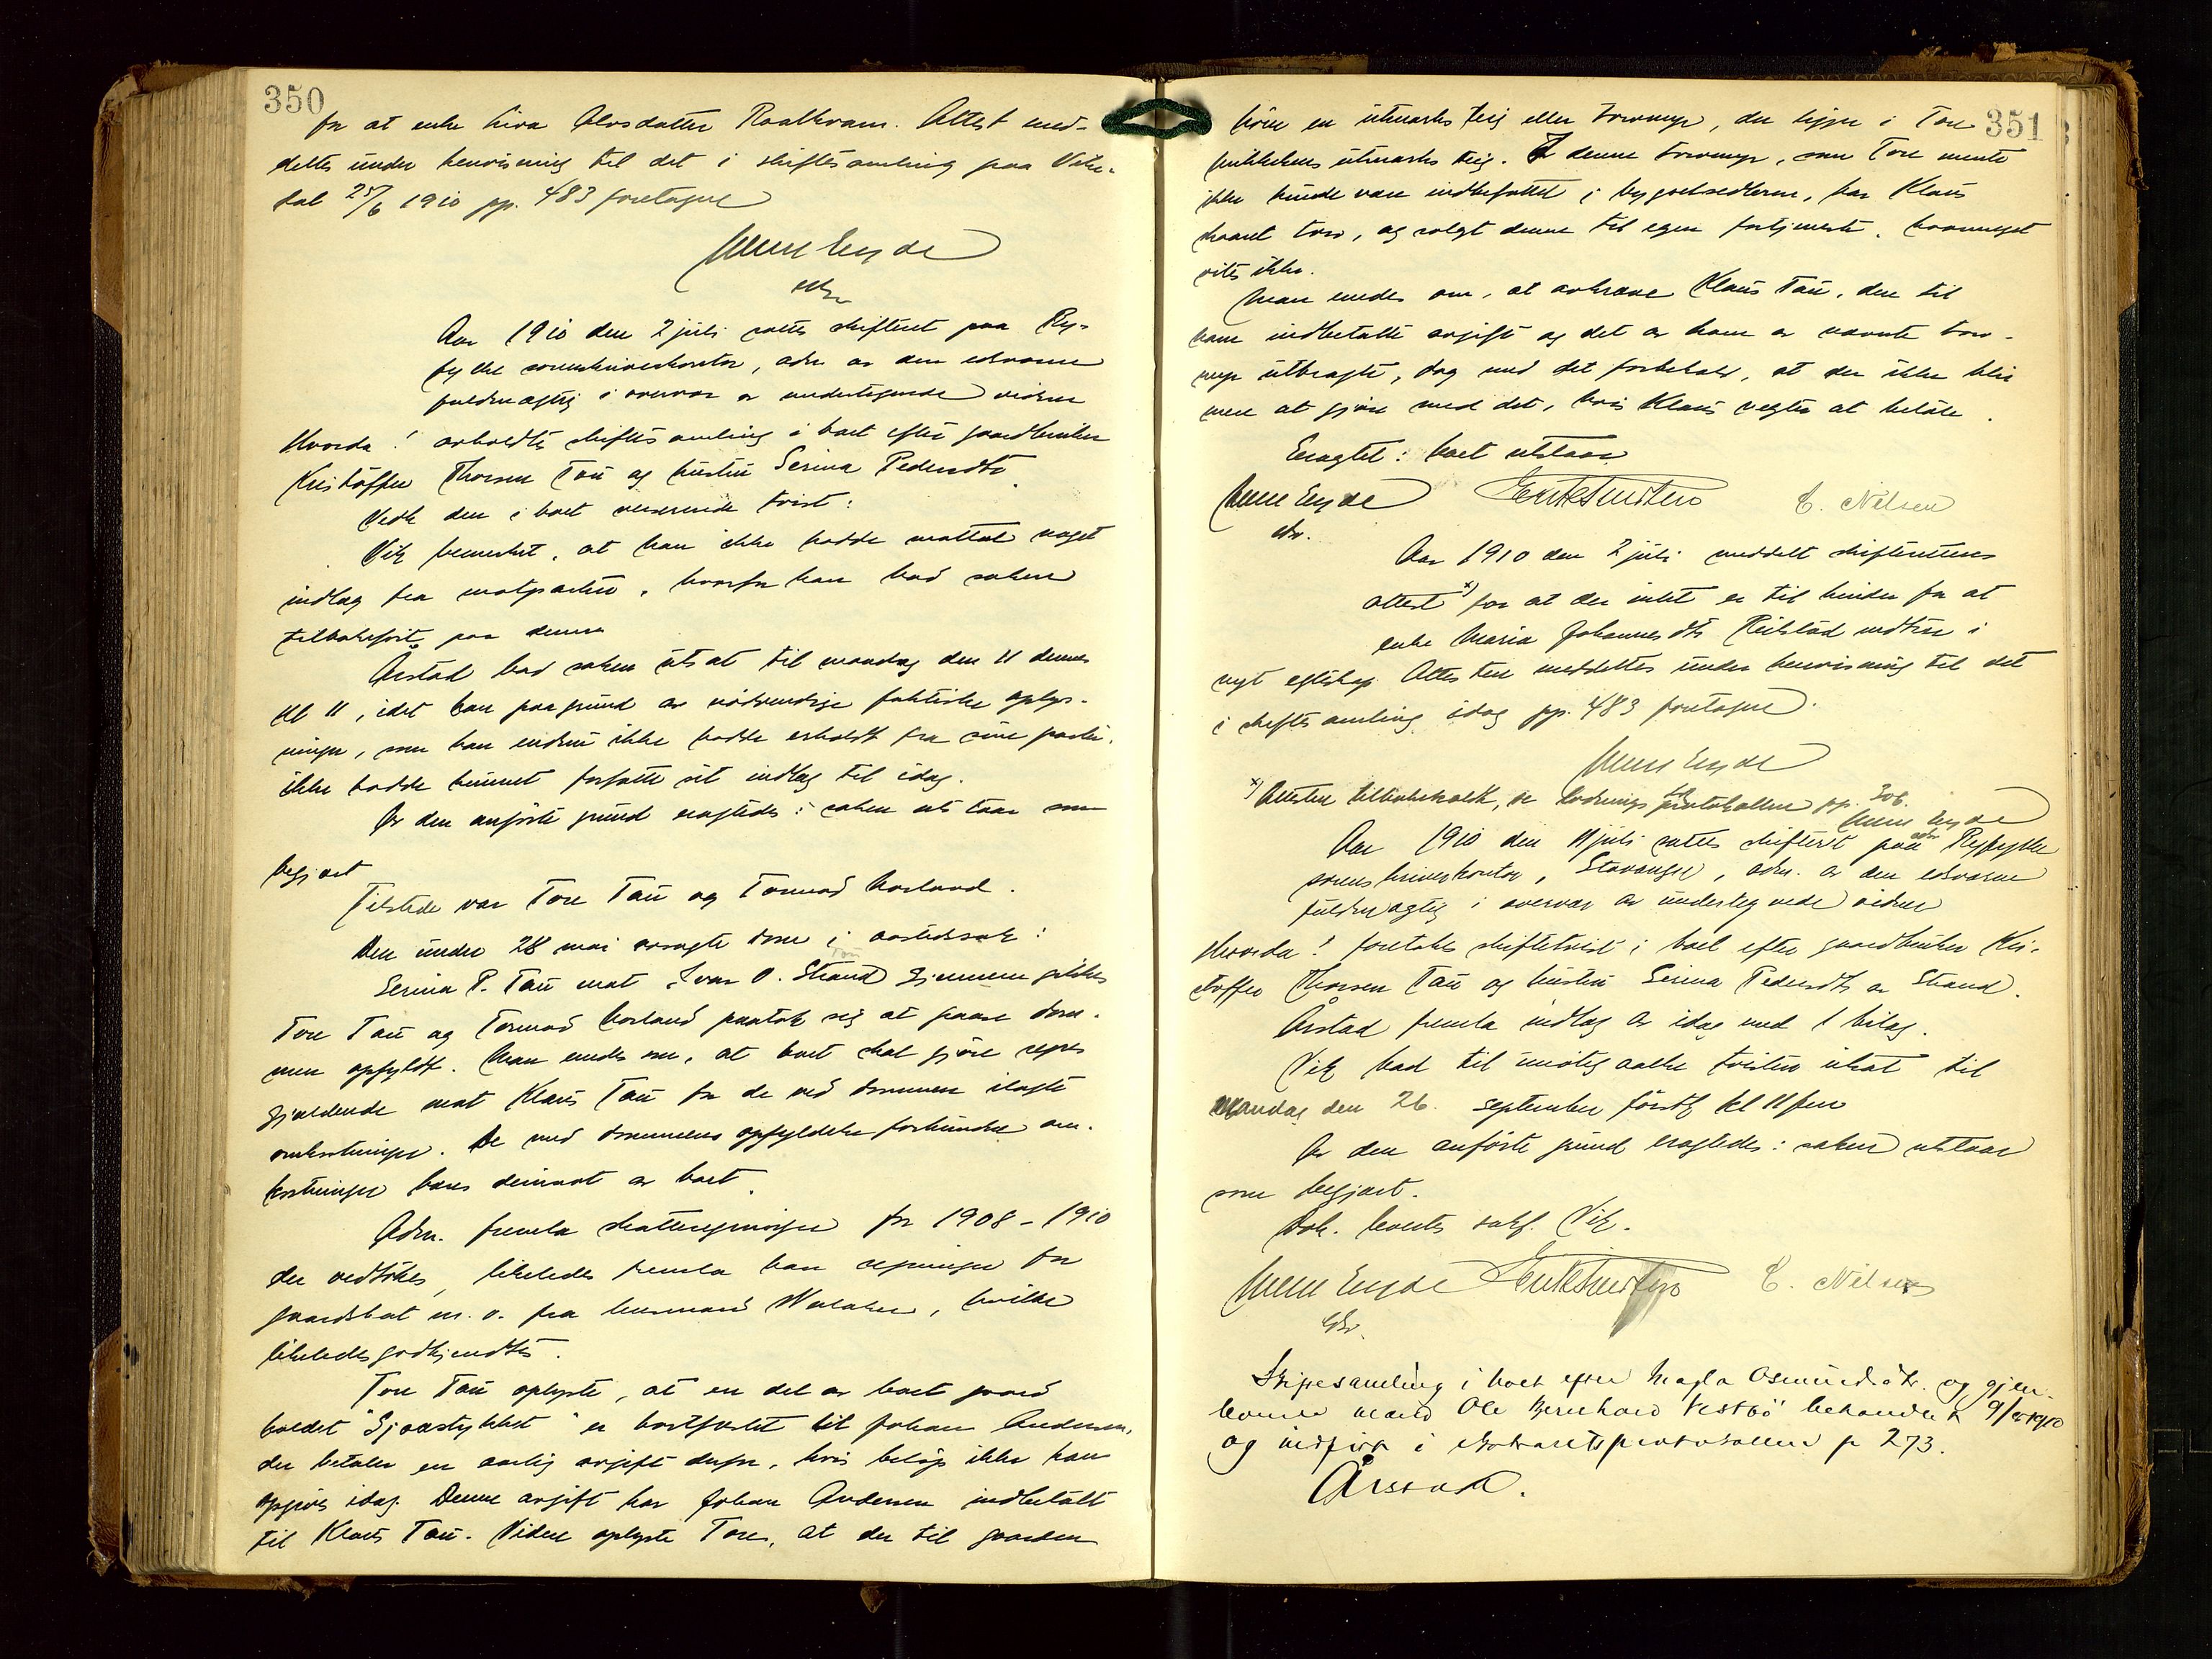 350
for at enke Liva Olvsdatter Raalkvam. Attest med-
deltes under henvisning til det i skiftesamling paa Vike-
dal 25/6 1910 pp. 483 foretagne
Aar 1910 den 2 juli sattes skifteret paa Ry-
fylke sorenskriverkontor, adm. av den edsvorne
fuldmægtig i overvær av undertegnede vidner
Hvorda! avholdtes skiftesamling i boet efter gaardbruker
Kristoffer Thorsen Tau og hustru Serina Pedersdtr.
Vedk. den i boet verserende tvist:
Vik bemerket, at han ikke hadde mottat noget
indlæg fra motparten, hvorfor han bad saken
tilbakeført paa denne
Årstad bad saken utsat til mandag den 11 dennes
kl 11, idet han paa grund av nødvendige faktiske oplys-
ninger, som han endnu ikke hadde erholdt fra sine parter,
ikke hadde kunnet forfatte sit indlæg til idag.
Av den anførte grund eragtedes: saken utstaar som
begjært
Tilstede var Tore Tau og Tormod Horland.
Den under 28 mai avsagte dom i aastedssak:
Serina P. Tau mot Ivar O. Strand gjennemgikkes
Tore Tau og Tormod Horland paatok sig at faa dom-
men opfyldt. Man enedes om, at boet skal gjøre regres
gjældende mot Klaus Tau for de ved dommen ilagte
omkostninger. De med dommens opfyldelse forbundne om-
kostninger bæres derimot av boet.
Adm. fremla skatteregninger for 1908-1910
der vedtokes, likeledes fremla han regninger for
gaardsbot m.v. fra lensmand Walaker, hvilke
likeledes godkjendtes.
Tore Tau oplyste, at en del av boet gaard
kaldet "Sjøastykket" er bortfæstet til Johan Andersen,
der betaler en aarlig avgift derfor, hvis beløp ikke kan
opgives idag. Denne avgift har Johan Andersen indbetalt
til Klaus Tau. Videre oplyste Tore, at der til gaarden
351
hører en utmarksteig eller torvmyr, der ligger i Tore
utmarksteig. I denne torvmyr, som Tore mente
ikke kunde være indbefattet i bygselsedlerne, har Klaus
skaaret torv, og solgt denne til egen fortjeneste. hvormeget
vites ikke.
Man enedes om, at avkræve Klaus Tau, den til
ham indbetalte avgift og det av ham av nævnte torv-
myr utbragte, dog med det forbehold, at der ikke blir
mere at gjøre med det, hvis Klaus vegter at betale.
Eragtet: boet utstaar
C. Nilsen
Aar 1910 den 2 juli meddelt skifterettens
attest x) for at der intet er til hinder for at
enke Maria Johannesdtr. indtrær i
nyt egteskap. Attesten meddeltes under henvisning til det
i skiftesamling idag pp. 483 foretagne.
x) Attesten tilbakekaldt, se protokollen pp. 306.
Aar 1910 den 11 juli sattes skifteret paa Ryfylke
sorenskriverkontor, Stavanger, adm. av den edsvorne
fuldmægtig i overvær av undertegnede vidner
Hvorda! foretokes skiftetvist i boet efter gaardbruker Kri-
stoffer Thorsen Tau og hustru Serina Pedersdtr. av Strand.
Årstad fremla indlæg av idag med 1 bilag.
Vik bad til imøtegaaelse tvisten utsat til
mandag den 26. september førstk. kl 11 fm
Av den anførte grund eragtedes: saken utstaar
som begjært.
Dok. leverts sakf. Vik.
C. Nilsen
Skiftesamling i boet efter Magla Osmundsdtr. og gjen-
levende mand Ole Bernhard Vestbø behandlet 9/8 1910
og indført i ekstraretsprotokollen p 273.
Årstad.